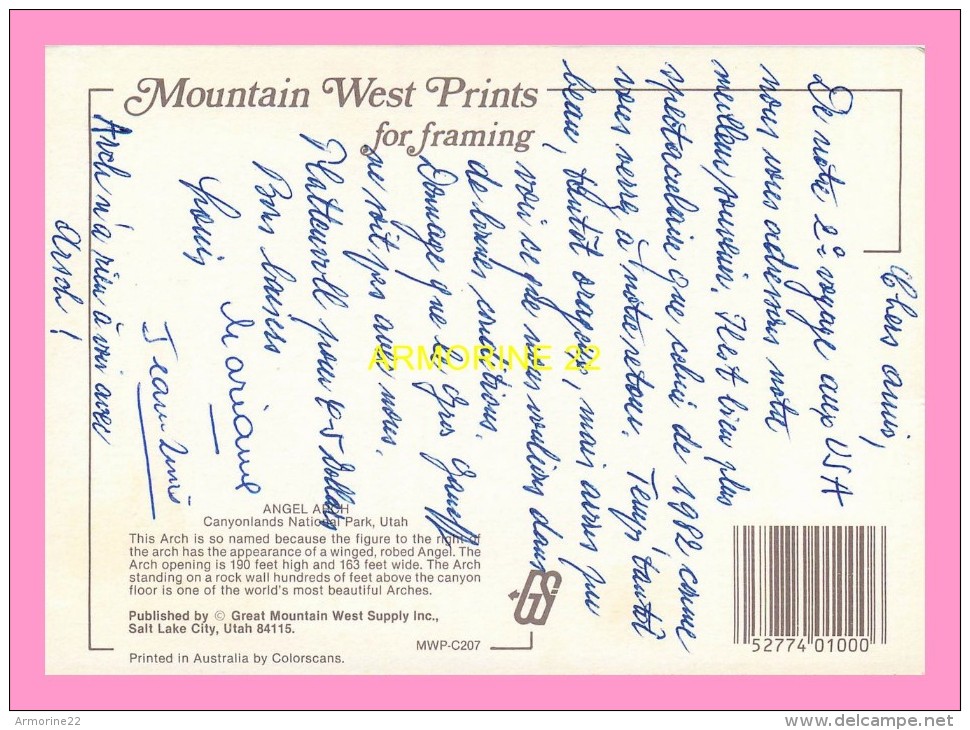 Mountain West Prints
for framing
Chers amis,
De notre 2e voyage aux USA
nous vous adressons notre
meilleur souvenir. Il est bien plus
spectaculaire que celui de 1982 comme
vous verrez à notre retour. Temps tantôt
beau, tantôt orageux, mais avons pu
voir ce que nous voulions dans
de bonnes conditions.
Dommage que le Gris
ne soit pas avec nous.
pour 45 Dollars
Bons baisers
Louis
Mariane
Jean Louis
Arch n'a rien à voir avec
Arsch !
ARMORINE 22
ANGEL ARCH
Canyonlands National Park, Utah
This Arch is so named because the figure to the right of
the arch has the appearance of a winged, robed Angel. The
Arch opening is 190 feet high and 163 feet wide. The Arch
standing on a rock wall hundreds of feet above the canyon
floor is one of the world's most beautiful Arches.
Published by © Great Mountain West Supply Inc.,
Salt Lake City, Utah 84115.
MWP-C207
Printed in Australia by Colorscans.
GS
52774 01000
Armorine22
www.delcampe.net